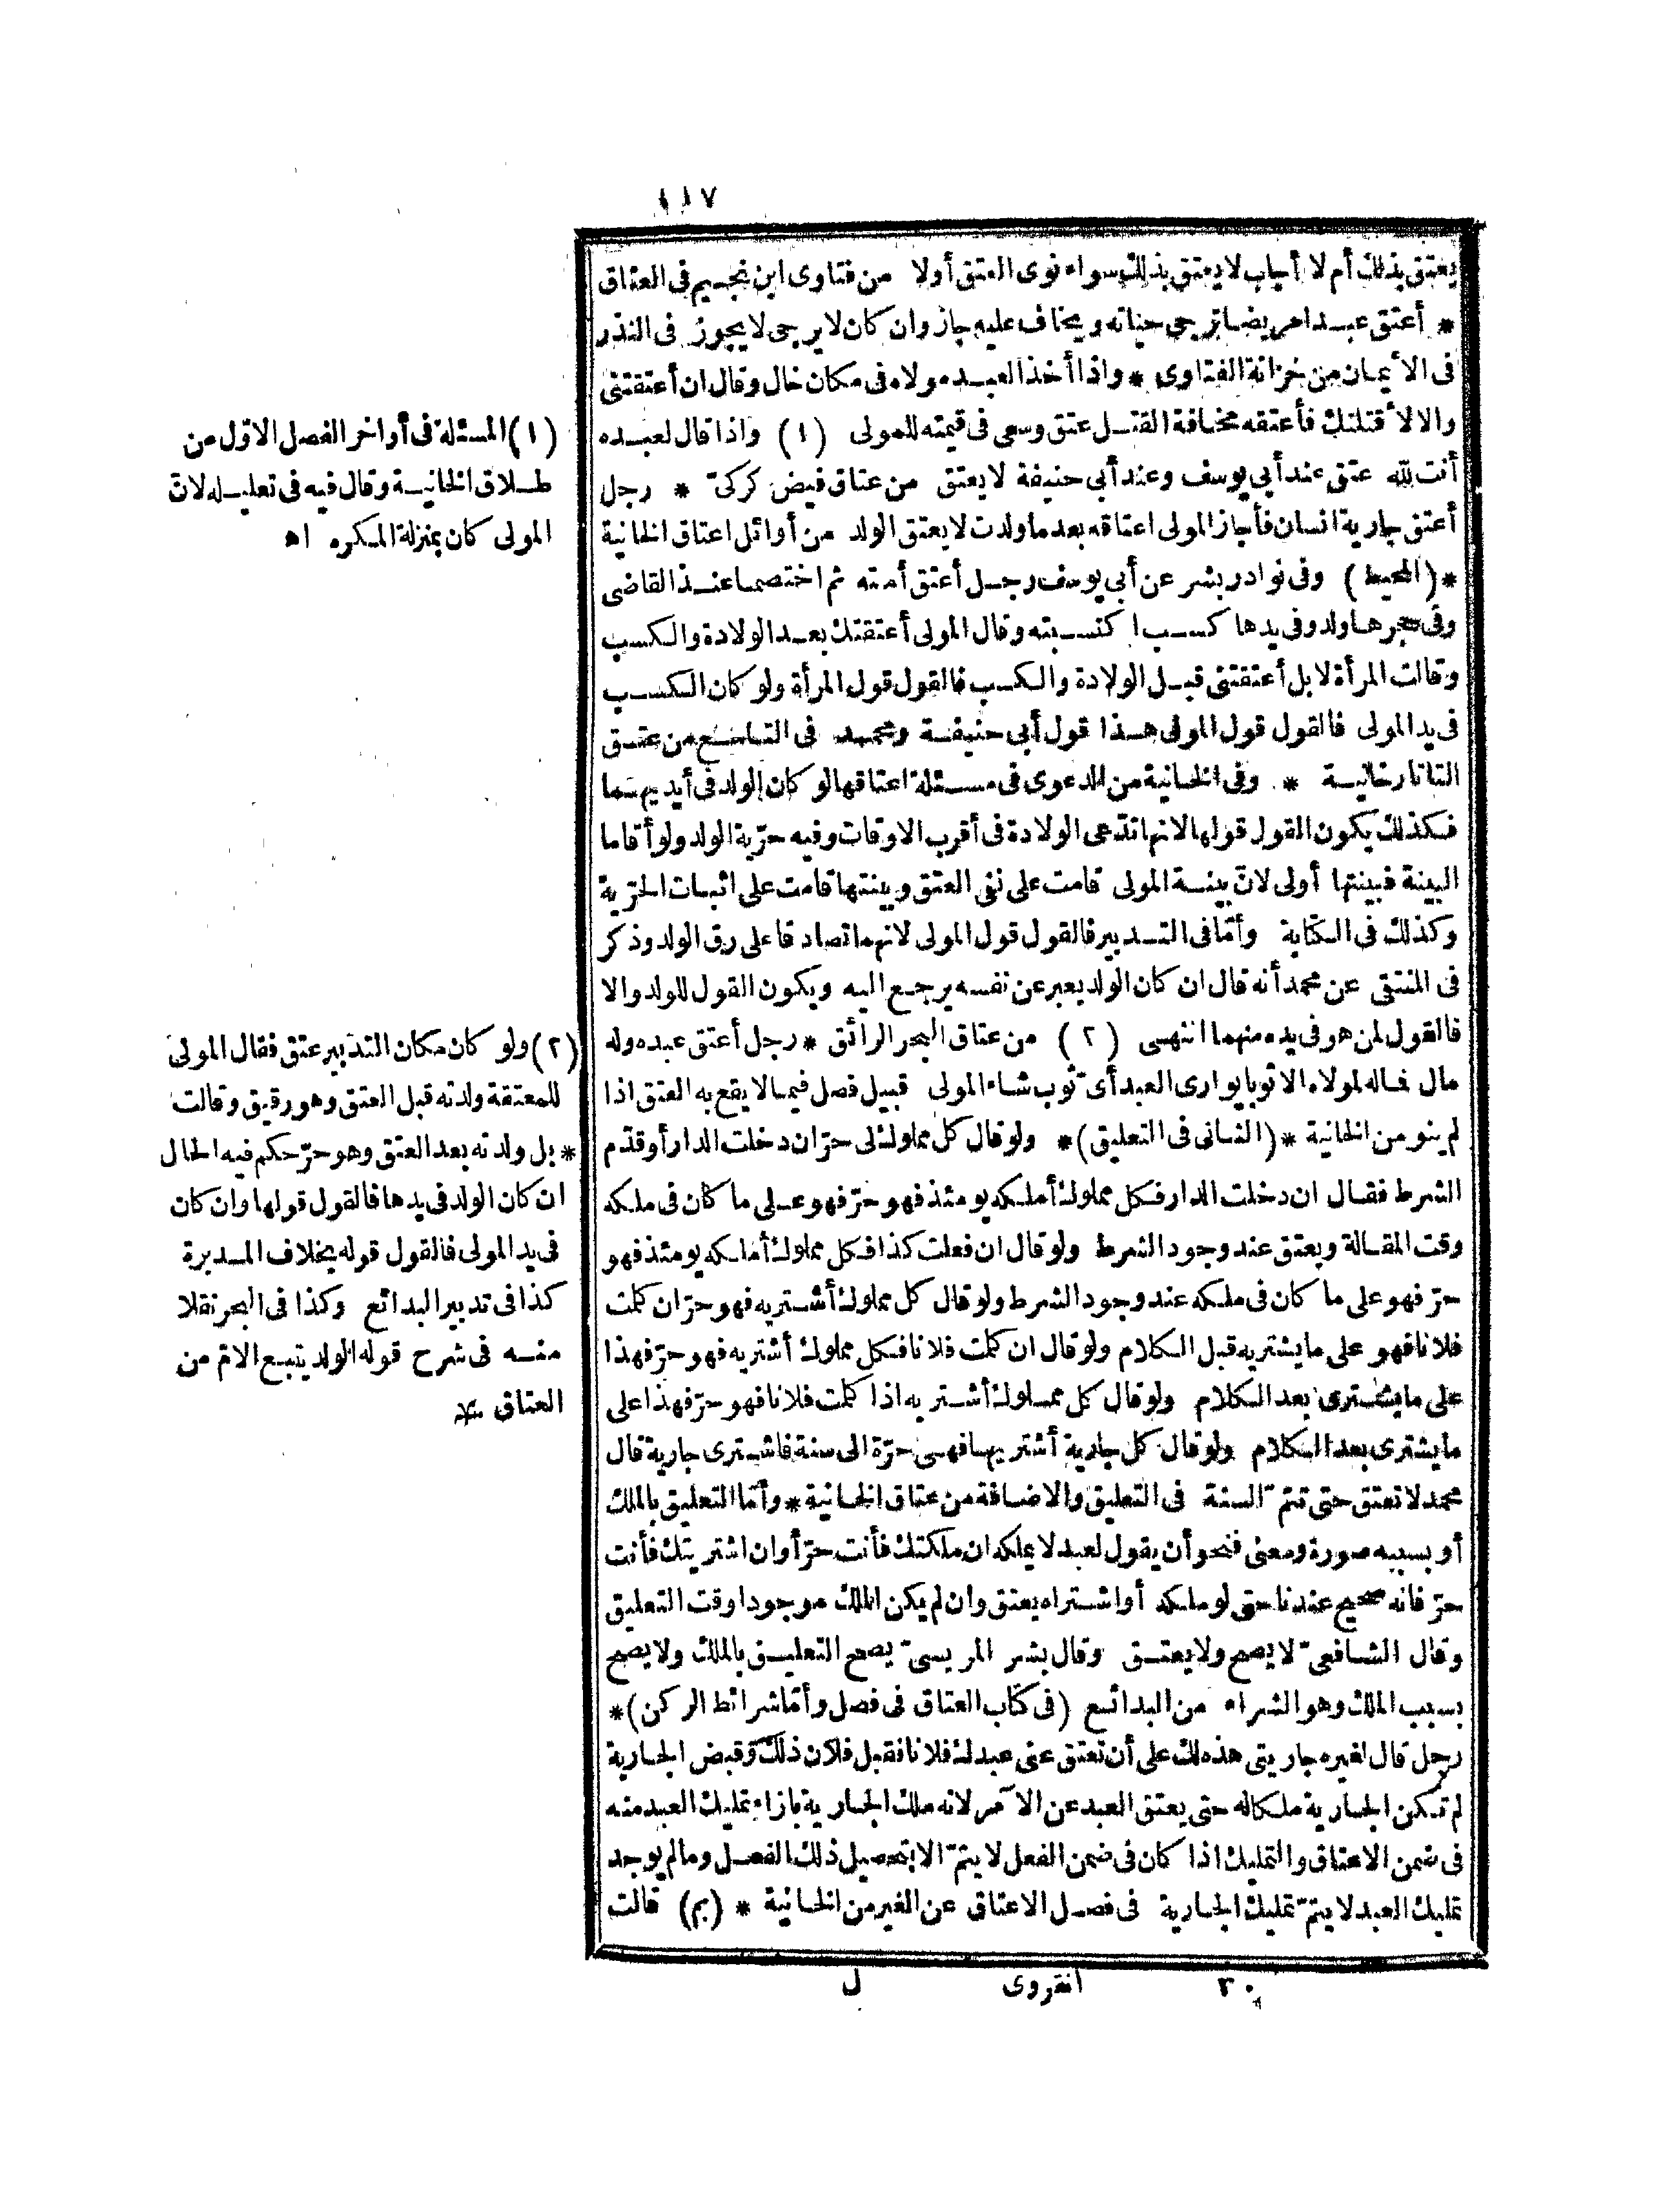 ١١٧
يعتق بذلك أم لا أجاب لا يعتق بذلك سواء نوى العتق أولا من فتاوى ابن نجيم فى العتاق
* أعتق عبدا مريضا ترجى حياته ويخاف عليه جاز وان كان لا يرجى لا يجوز فى النذر
فى الأيمان من خزانة الفتاوى * واذا أخذ العبد مولاه فى مكان خال وقال ان أعتقتنى
والا لأقتلنك فأعتقه مخافة القتل عتق وسعى فى قيمته للمولى (١) واذا قال لعبده
أنت لله عتق عند أبى يوسف وعند أبى حنيفة لا يعتق من عتاق فيض كركىّ * رجل
أعتق جارية انسان فأجاز المولى اعتاقه بعد ما ولدت لا يعتق الولد من أوائل اعتاق الخانية
*(المحيط) وفى نوادر بشر عن أبى يوسف رجل أعتق أمته ثم اختصما عند القاضى
وفى حجرها ولد وفى يدها كسب اكتسبته وقال المولى أعتقتك بعد الولادة والكسب
وقالت المرأة لا بل أعتقتنى قبل الولادة والكسب فالقول قول المرأة ولو كان الكسب
فى يد المولى فالقول قول المولى هذا قول أبى حنيفة ومحمد فى التاسع من عتق
التاتارخانية * وفى الخانية من الدعوى فى مسئلة اعتاقها لو كان الولد فى أيديهما
فكذلك يكون القول قولها لانها تدّعى الولادة فى أقرب الاوقات وفيه حرّية الولد ولو أقاما
البينة فبينتها أولى لانّ بينة المولى قامت على نفى العتق وبينتها قامت على اثبات الحرّية
وكذلك فى الكتابة وأمّا فى التدبير فالقول قول المولى لانهما تصادقا على رق الولد وذكر
فى المنتقى عن محمد أنه قال ان كان الولد يعبر عن نفسه يرجع اليه ويكون القول للولد والا
فالقول لمن هو فى يده منهما انتهى (٢) من عتاق البحر الرائق * رجل أعتق عبده وله
مال فماله لمولاه الا ثوبا يوارى العبد أىّ ثوب شاء المولى قبيل فصل فيما لا يقع به العتق اذا
لم ينو من الخانية *(الثانى فى التعليق)* ولو قال كل مملوك لى حرّ ان دخلت الدار أو قدّم
الشرط فقال ان دخلت الدار فكل مملوك أملكه يومئذ فهو حرّ فهو على ما كان فى ملكه
وقت المقالة ويعتق عند وجود الشرط ولو قال ان فعلت كذا فكل مملوك أملكه يومئذ فهو
حرّ فهو على ما كان فى ملكه عند وجود الشرط ولو قال كل مملوك أشتريه فهو حرّ ان كلمت
فلانا فهو على ما يشتريه قبل الكلام ولو قال ان كلمت فلانا فكل مملوك أشتريه فهو حرّ فهذا
على ما يشترى بعد الكلام ولو قال كل مملوك أشتريه اذا كلمت فلانا فهو حرّ فهذا على
ما يشترى بعد الكلام ولو قال كل جارية أشتريها فهى حرّة الى سنة فاشترى جارية قال
محمد لا تعتق حتى تتمّ السنة فى التعليق والاضافة من عتاق الخانية * وأمّا التعليق بالملك
أو بسببه صورة ومعنى فنحو أن يقول لعبد لا يملكه ان ملكتك فأنت حرّ أو ان اشتريتك فأنت
حرّ فانه صحيح عندنا حتى لو ملكه أو اشتراه يعتق وان لم يكن الملك موجودا وقت التعليق
وقال الشافعىّ لا يصح ولا يعتق وقال بشر المريسىّ يصح التعليق بالملك ولا يصح
بسبب الملك وهو الشراء من البدائع (فى كتاب العتاق فى فصل وأمّا شرائط الركن)*
رجل قال لغيره جاريتى هذه لك على أن تعتق عنى عبدك فلانا فقبل فلان ذلك وقبض الجارية
لم تكن الجارية ملكا له حتى يعتق العبد عن الآمر لانه ملك الجارية بازاء تمليك العبد منه
فى ضمن الاعتاق والتمليك اذا كان فى ضمن الفعل لا يتمّ الا بتحصيل ذلك الفعل وما لم يوجد
تمليك العبد لا يتمّ تمليك الجارية فى فصل الاعتاق عن الغير من الخانية * (بم) قالت
(١) المسئلة فى أواخر الفصل الاوّل من
طلاق الخانية وقال فيه فى تعليله لانّ
المولى كان بمنزلة المكره اه
(٢) ولو كان مكان التدبير عتق فقال المولى
للمعتقة ولدته قبل العتق وهو رقيق وقالت
* بل ولدته بعد العتق وهو حرّ حكم فيه الحال
ان كان الولد فى يدها فالقول قولها وان كان
فى يد المولى فالقول قوله بخلاف المدبرة
كذا فى تدبير البدائع وكذا فى البحر نقلا
منه فى شرح قوله الولد يتبع الامّ من
العتاق
٣٠ انقروى ل